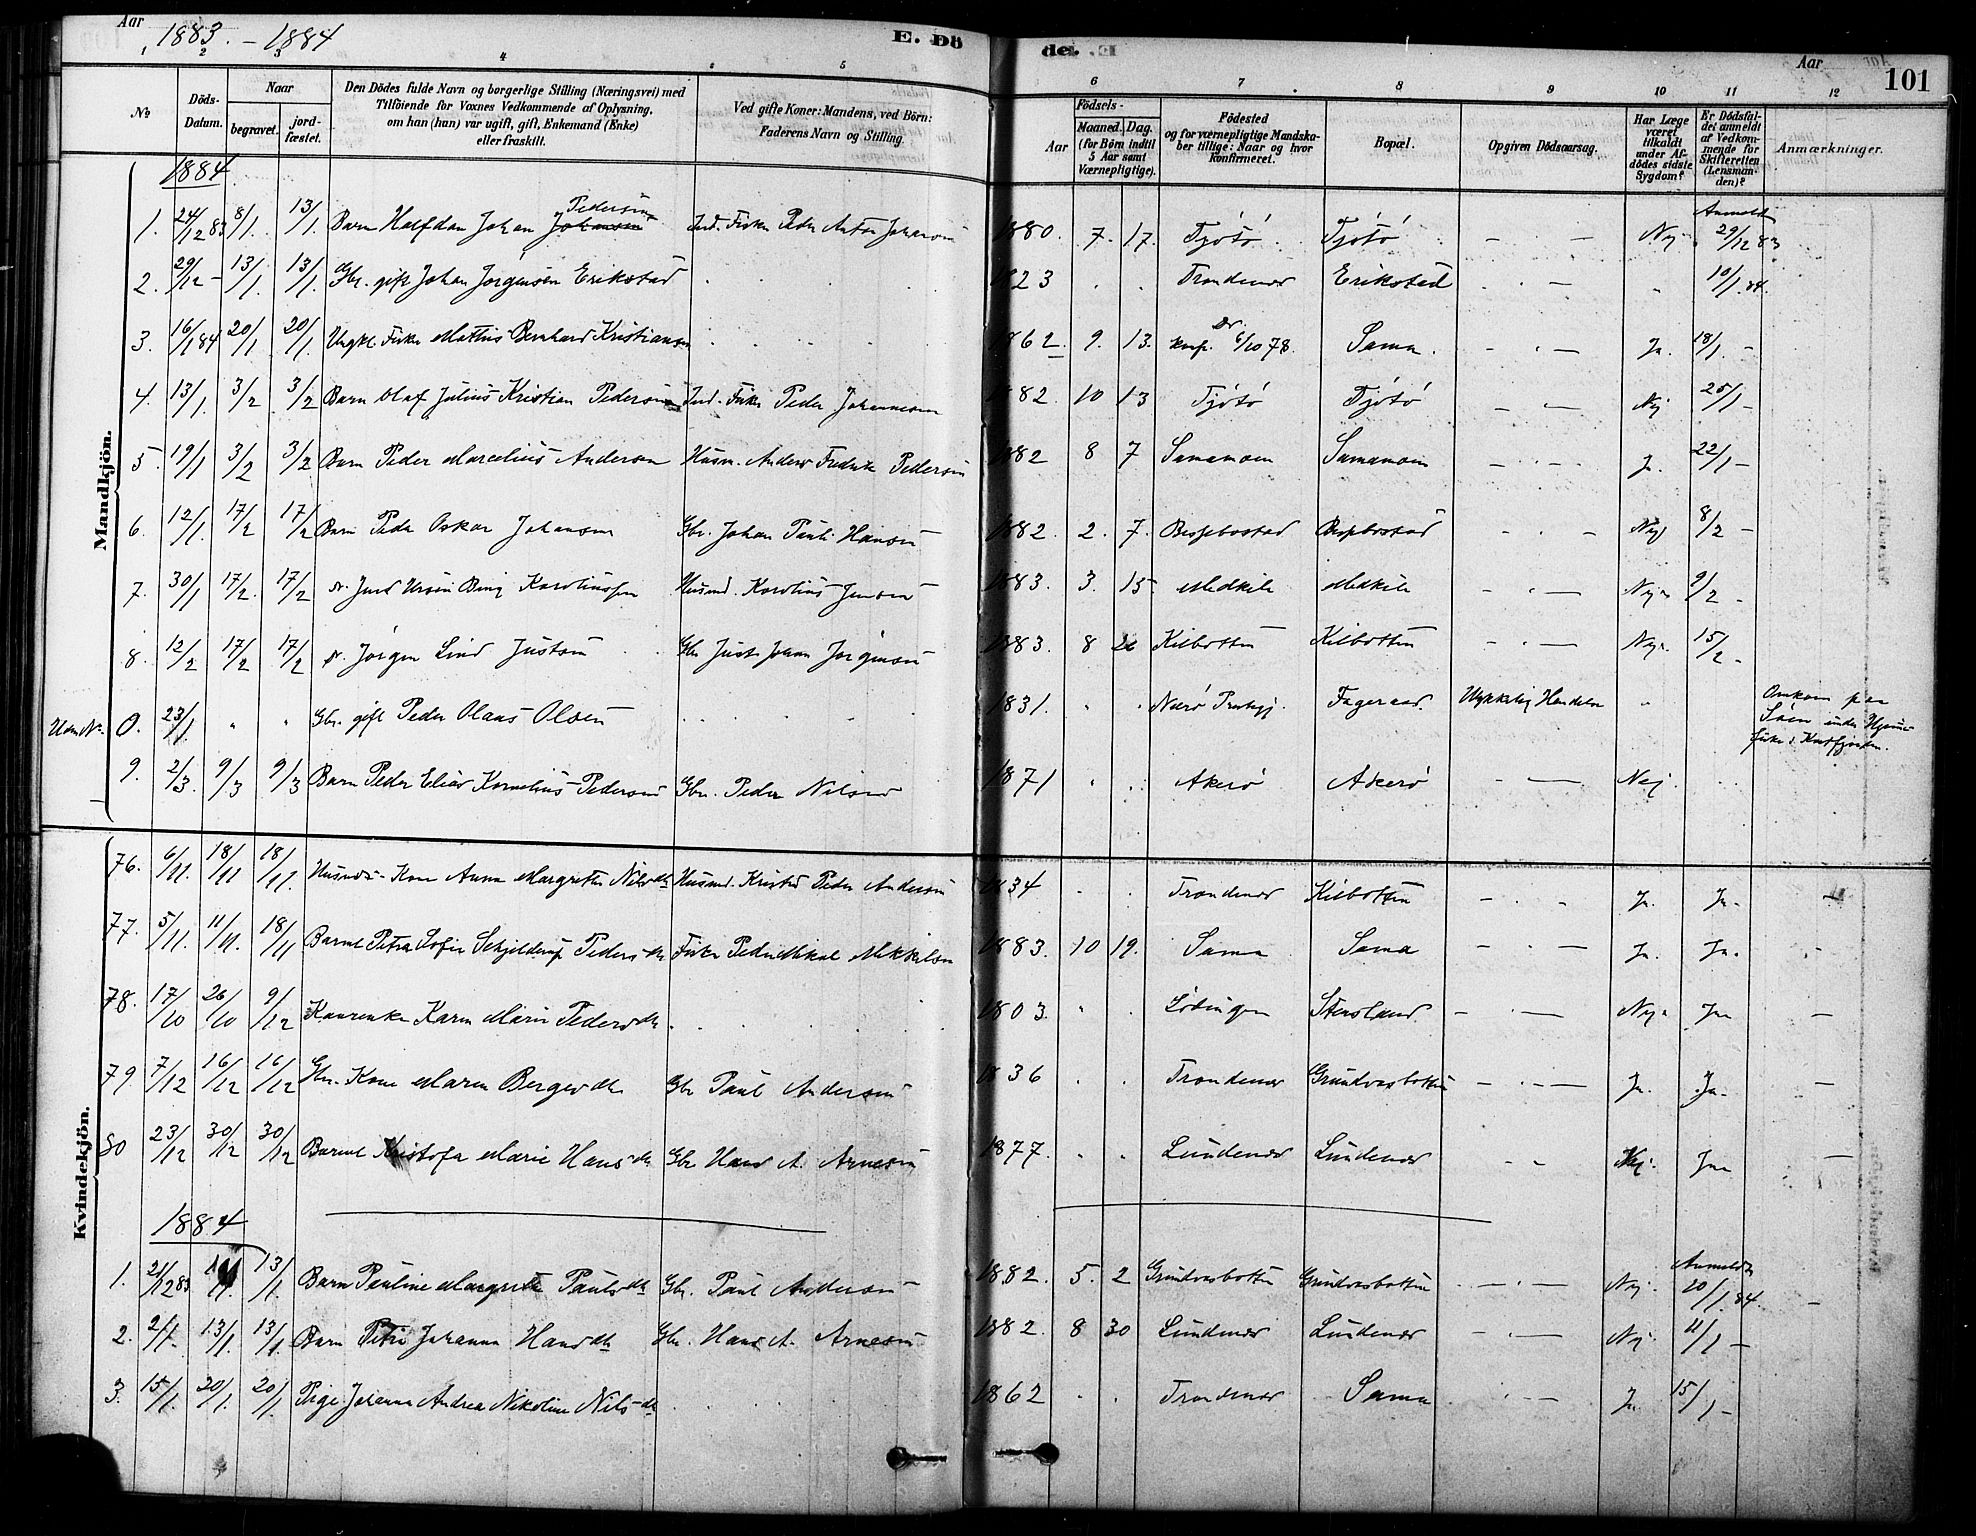 Aar 1883. - 1884
E. Dö
de. E
Aar
101
1 2 3 4 5 6 7 8 9 10 11 12
No
Döds-Datum.
Naar
begravet.
jord-fæstet.
Den Dödes fulde Navn og borgerlige Stilling (Næringsvei) med
Tilföiende for Voxnes Vedkommende af Oplysning,
om han (hun) var ugift, gift, Enkemand (Enke)
eller fraskilt.
Ved gifte Koner: Mandens, ved Börn:
Faderens Navn og Stilling.
Födsels-
Aar
Maaned. Dag.
(for Börn indtil
5 Aar samt
Værnepligtige).
Födested
og for værnepligtige Mandska-
ber tillige: Naar og hvor
konfirmeret.
Bopæl.
Opgiven Dödsaarsag.
Har Læge
været
tilkaldt
under Af-
dödes sidste
Sygdom?
Er Dödsfal-
det anmeldt
af Vedkom-
mende for
Skifteretten
(Lensman-
den)?
Anmærkninger.
Mandkjön.
1884
1. 24/12 83 8/1. 13/1. Barn Halfdan Johan Johansen Pedersen Ind. Fisker Peder Anton Johansen 1880. 7. 17. Tjötö Tjötö - - Nej. Anmeldt 29/12 83
2. 29/12 - 13/1. 13/1. Gbr. gift Johan Jörgensen Erikstad 1823 Trondenes Erikstad - - 10/1.84.
3. 16/1 84 20/1. 20/1. Ungkl. Fisker Mathias Bernhard Kristiansen 1862. 9. 13. Dr. konf. 6/10 78. Sama. - - Ja. 18/1. -
4. 13/1. 3/2 3/2 Barn Olaf Julius Kristian Pedersen Ind. Fisker Peder Johannesen 1882. 10 13 Tjötö Tjötö - - Nej 25/1 -
5. 19/1 3/2 3/2 Barn Peder Marcelius Andersen Husm. Anders Fredrik Pedersen 1882 8 7 Samamoen Samamoen - - Ja. 22/1 -
6. 12/1. 17/2 17/2 Barn Peder Oskar Johansen Gbr. Johan Pauli Hansen 1882. 2. 7. Bespbostad Bespbostad - - Nej 8/2 -
7. 30/1 17/2. 17/2 Karoliussen Husmd. Karolius Jensen 1883. 3. 15 Medkile Medkile - - Nej 9/2 -
8. 12/2 17/2 17/2 Jörgen Lind Justsen Gbr Just Johan Jörgensen 1883. 8 26 Kilbotten Kilbotten - - Nej. 15/2 -
Uden No. 0. 23/1 " " Gbr. gift Peder Olaus Olsen 1831. Nærö Prestegj. Fageraas. Ulykkelig Hændelse " Omkom paa
Söen under
9. 2/3. 9/3 9/3 Barn Peder Elias Kornelius Pedersen Gbr. Peder Nilsen 1871 Akerö Akerö - - Nej.
Kvindekjön.
76. 6/11. 18/11 18/11. Husmds-Kone Anna Margrethe Nilsdtr Husmd. Kristen Peder Andersen 1834 Trondenes Kilbotten - - Ja. Ja. -
77. 5/11. 11/11. 18/11 Barnet Petra Sofie Schjelderup Pedersdtr Fisker Peder Mikal Mikkelsen 1883. 10 19. Sama Sama - - Ja. Ja. -
78. 17/10 26/10 9/12 Kaarenke Karen Marie Pedersdtr. 1803. Lödingen Stensland. - - Nej. Ja -
79. 7/12 16/12 16/12 Gbr. Kone Maren Bergesdtr Gbr Paul Andersen 1836 Trondenes Grundvasbotten - - Ja. Ja. -
80 23/12 30/12 30/12 Barnet Kristofa Marie Hansdtr Gbr Hans A. Arnesen 1877. Lundenes Lundenes - - Nej. Ja -
1884
1. 21/12 83 13/1. Barn Pauline Margrete Paulsdtr Gbr. Paul Andersen 1882. 5. 2 Grundvasbotten Grundvasbotten - - Nej. Anmeldt 20/1. 84. -
2. 2/1. 13/1. 13/1. Barn Petra Johanna Hansdtr Gbr. Hans A. Arnesen 1882. 8 30 Lundenes Lundenes - - Nej. 11/1 -
3. 15/1. 20/1. 20/1. Pige Johanna Andrea Nikoline Nilsdtr 1862 Trondenes Sama - - Ja. 15/1 -